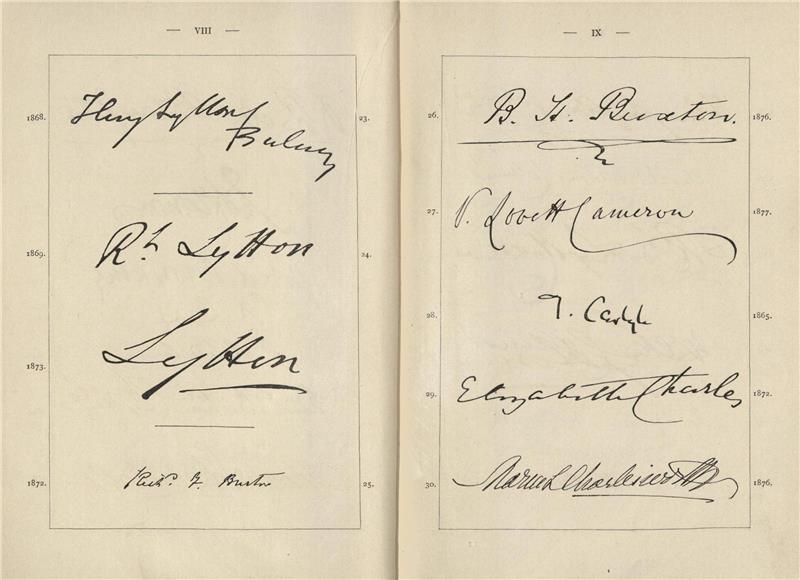 — VIII —
1868. Henry Lytton 23.
Bulwer
1869. Rt. Lytton 24.
1873. Lytton
1872. Richd. F. Burton 25.
— IX —
26. B. H. Buxton. 1876.
27. V. Lovett Cameron 1877.
28. T. Carlyle 1865.
29. Elizabeth Charles 1872.
30. Maria L Charlesworth 1876.